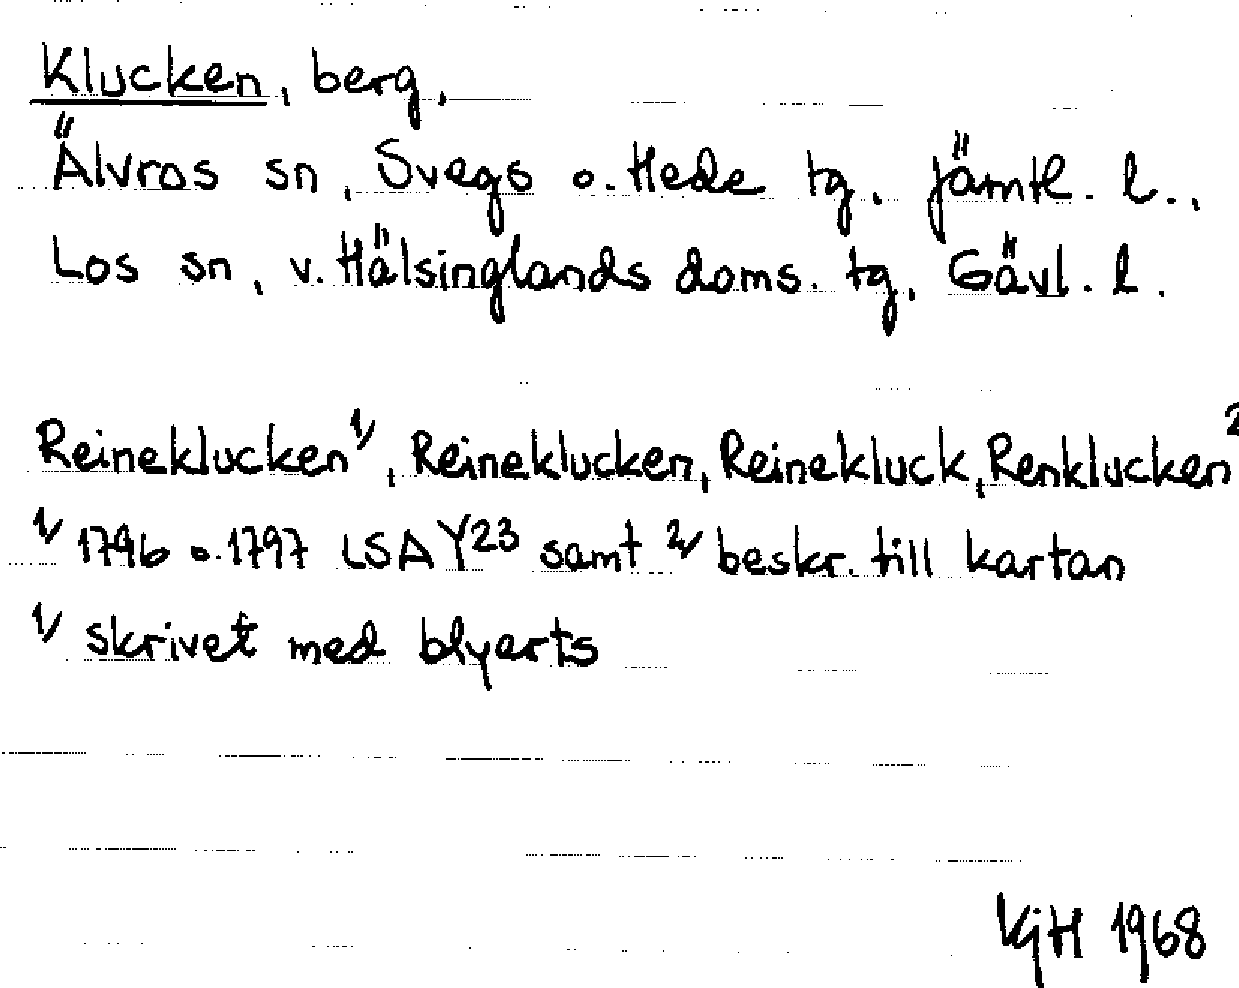 Klucken, berg,
Älvros sn, Svegs o. Hede tg. Jämtl. l.,
Los sn, v. Hälsinglands doms. tg, Gävl. l.
Reineklucken 1/, Reineklucken, Reinekluck, Renklucken 2
1/ 1796 o. 1797 LSA Y23 samt 2/ beskr. till kartan
1/ skrivet med blyerts
VGH 1968